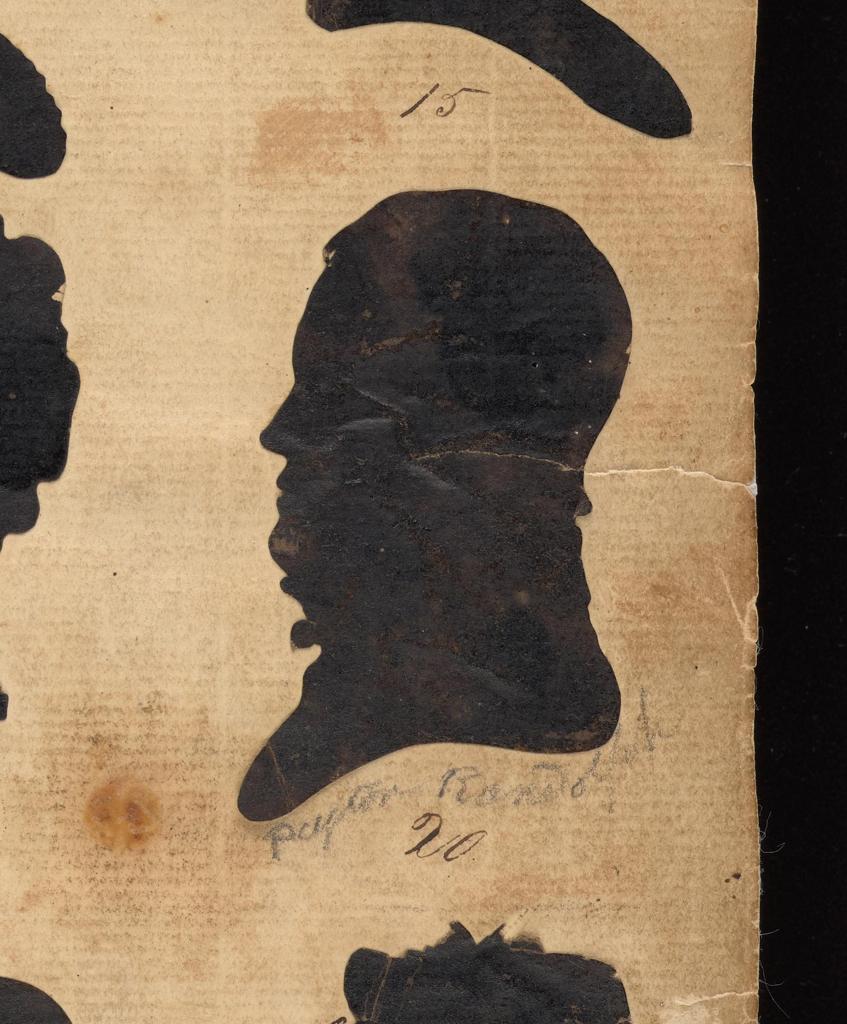 15
payton Randolph
20